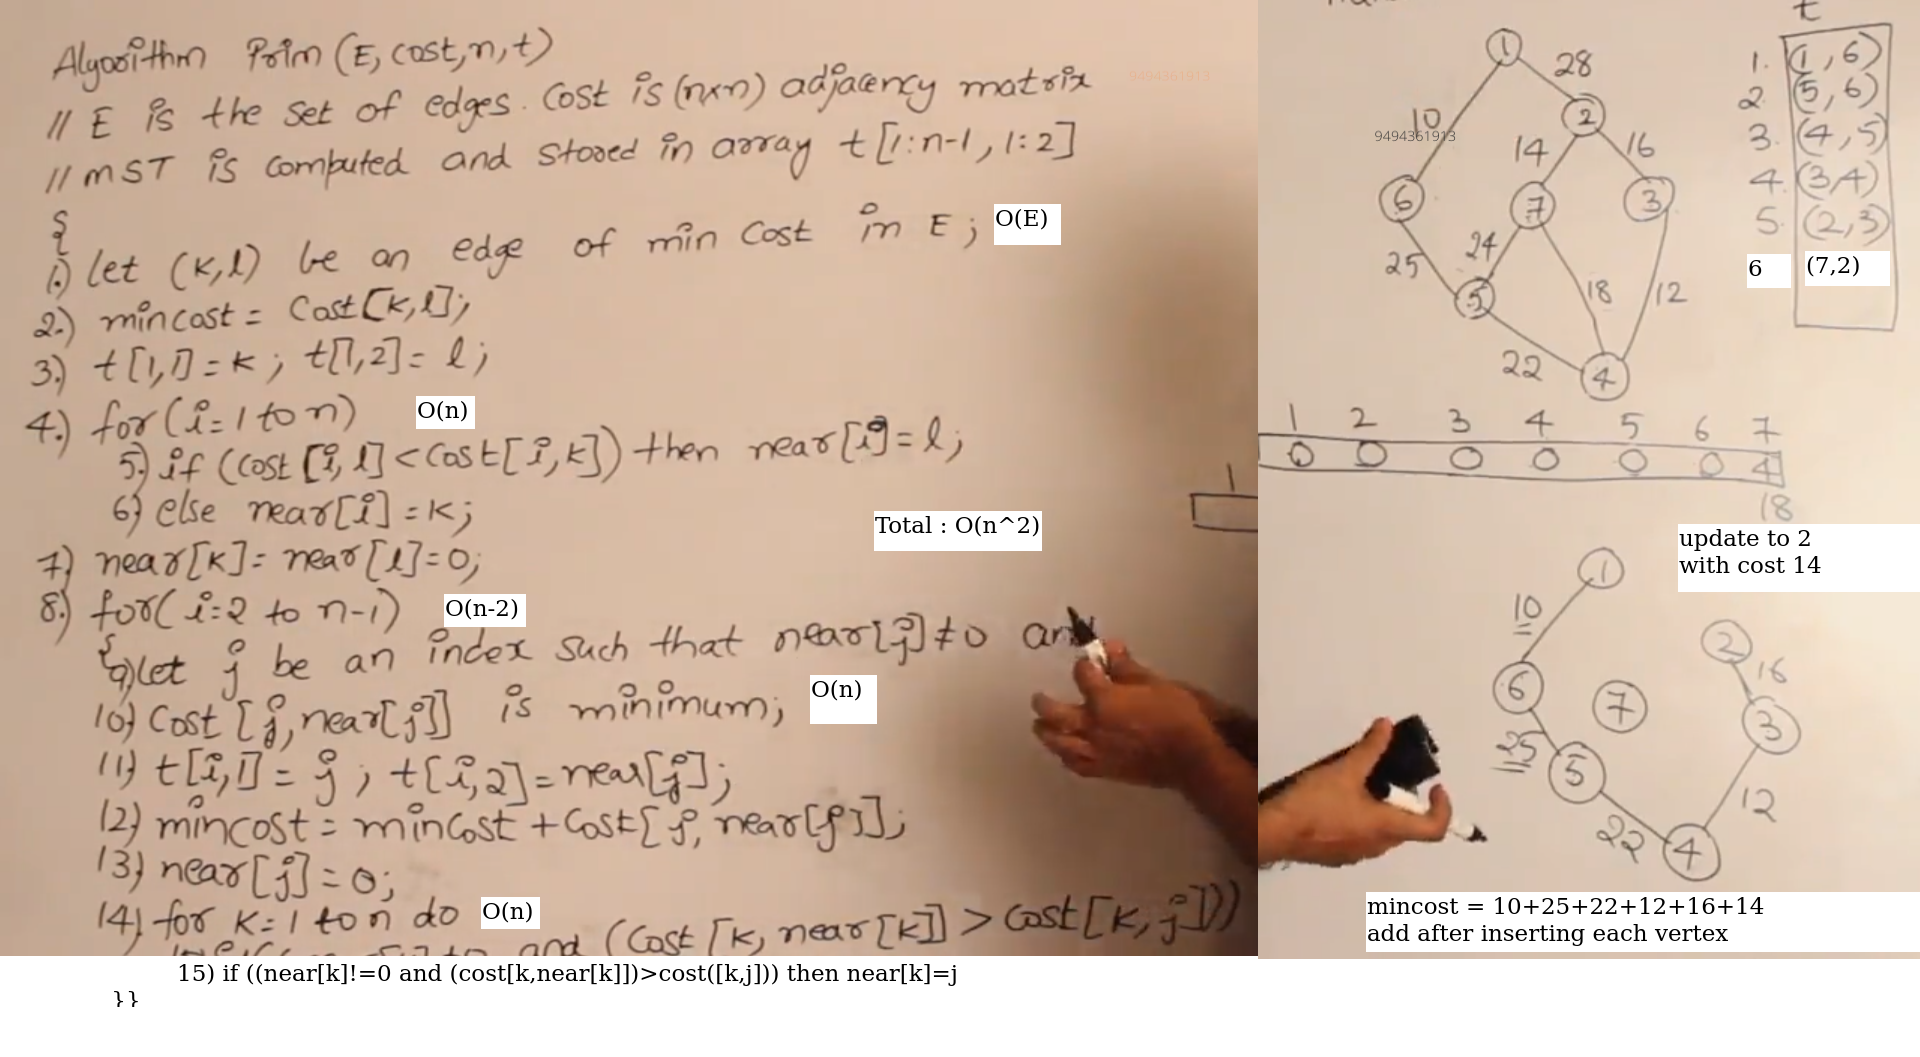 Algorithm Prim (E, cost, n, t)
// E is the set of edges. Cost is (n×n) adjacency matrix
// MST is computed and stored in array t [1:n-1, 1:2]
{
1.) Let (k,l) be an edge of min cost in E ; O(E)
2.) mincost = Cost[k,l];
3.) t[1,1] = k ; t[1,2] = l ;
4.) for (i=1 to n) O(n)
5.) if (cost [i,l] < cost [i,k]) then near[i] = l;
6) else near[i] = k;
Total : O(n^2)
7) near[k] = near[l] = 0;
8.) for( i=2 to n-1) O(n-2)
{
9) let j be an index such that near[j] ≠ 0 and
10) Cost [j, near[j]] is minimum; O(n)
11) t[i,1] = j ; t[i,2] = near[j];
12) mincost = mincost + Cost[j, near[j]];
13) near[j] = 0;
14) for k=1 to n do O(n)
and (cost [k, near[k]] > cost [k, j]))
15) if ((near[k]!=0 and (cost[k,near[k]])>cost([k,j])) then near[k]=j
}}
9494361913
t
1. (1, 6)
2. (5, 6)
3. (4, 5)
4. (3,4)
5. (2,3)
6 (7,2)
1
28
10
2
9494361913
14
16
6
7
3
24
25
5
18
12
22
4
1 2 3 4 5 6 7
0 0 0 0 0 0 4
18
1
update to 2
with cost 14
1
10
2
16
6
7
3
25
5
12
22
4
mincost = 10+25+22+12+16+14
add after inserting each vertex